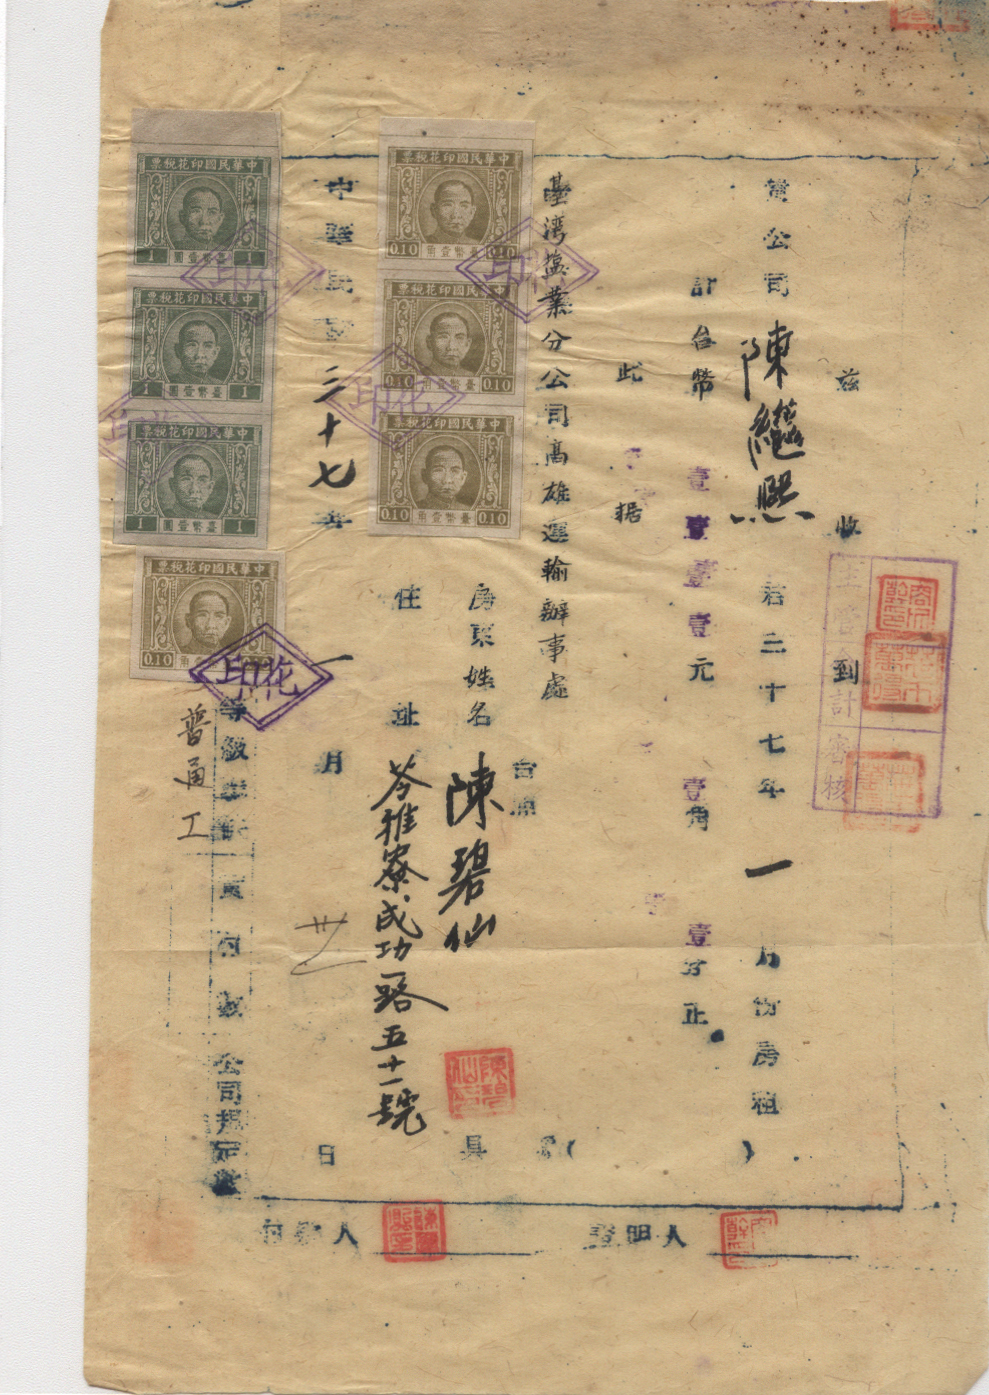 茲收到
貴公司陳繼熙君三十七年一月份房租
計台幣壹壹壹壹元壹角壹分正
此据
臺灣塩業分公司高雄運輸辦事處
台照
房東姓名陳碧仙具
住址苓雅寮成功路五十一號
中華民國三十七年一月廿日
等級
公司規定
普通工
付款人
證明人
主管會計審核
中華民國印花稅票
1 臺幣壹圓 1
中華民國印花稅票
1 臺幣壹圓 1
中華民國印花稅票
1 臺幣壹圓 1
中華民國印花稅票
0.10 臺幣壹角 0.10
中華民國印花稅票
0.10 臺幣壹角 0.10
中華民國印花稅票
0.10 臺幣壹角 0.10
中華民國印花稅票
0.10 角
印花
印花
印花
印花
印花